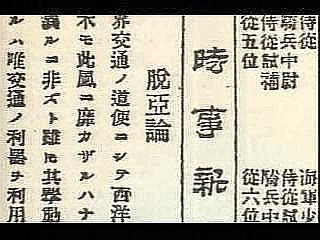 侍從
騎兵中尉
侍從試補
從五位
海軍少
侍從試
騎兵中
從六位
時事新
脫亞論
界交通ノ道便ニシテ西洋
木モ此風ニ靡カザルハナ
異ルニ非ズト雖𪜈其擧動
ルハ唯交通ノ利器ヲ利用